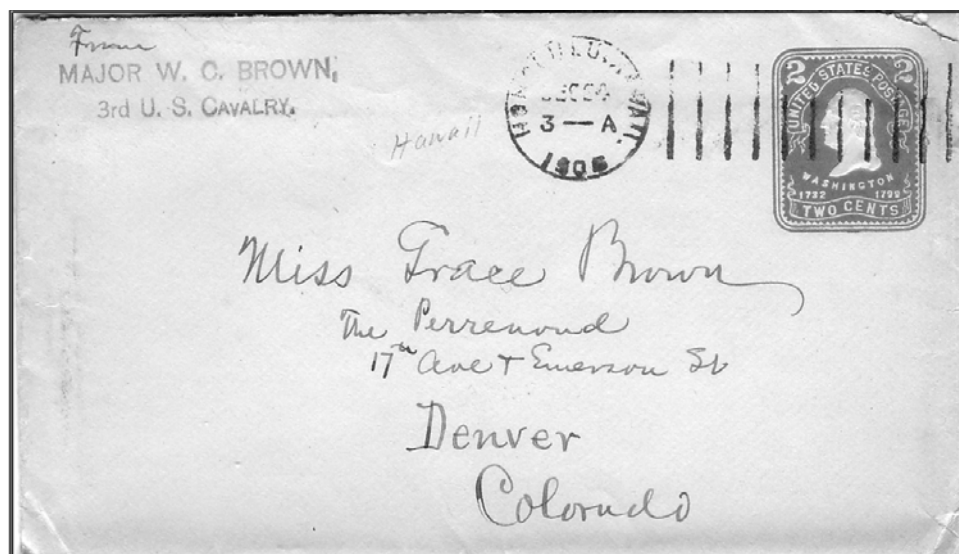 From
MAJOR W. C. BROWN,
3rd U. S. CAVALRY.
Hawaii
HONOLULU, HAWAII.
DEC 24
3 — A
1906
2 2
UNITED STATES POSTAGE
WASHINGTON
1732 1799
TWO CENTS
Miss Grace Brown
The Perrenoud
17th Ave + Emerson St
Denver
Colorado